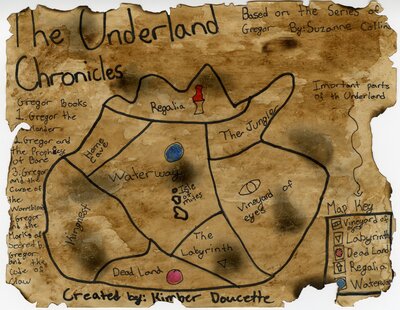 The Underland
Chronicles
Based on the Series of
Gregor By: Suzanne Collins
Gregor Books
1. Gregor the
Overlander
2. Gregor and
The Prophecy
of Bane
3. Gregor
and the
Curse of
the
Warmbloods
4. Gregor
and the
Marks of
Secret
5.
Gregor
and the
Code of
Claw
Important parts
of th Underland
Regalia
The Jungle
Waterway
Isle
of
Vineyard of
eyes
The
Labyrinth
Dead Land
Map Key
Vineyard of
eyes
Labyrinth
Dead Land
Regalia
Waterway
Created by: Kimber Doucette